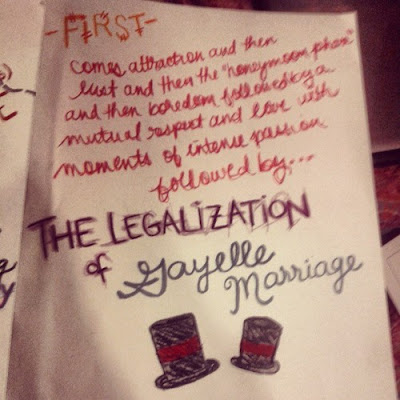 -FIRST-
comes attraction and then
lust and then the "honeymoon phase"
and then boredom followed by a
mutual respect and love with
moments of intense passion
followed by...
THE LEGALIZATION
of Gayelle
Marriage